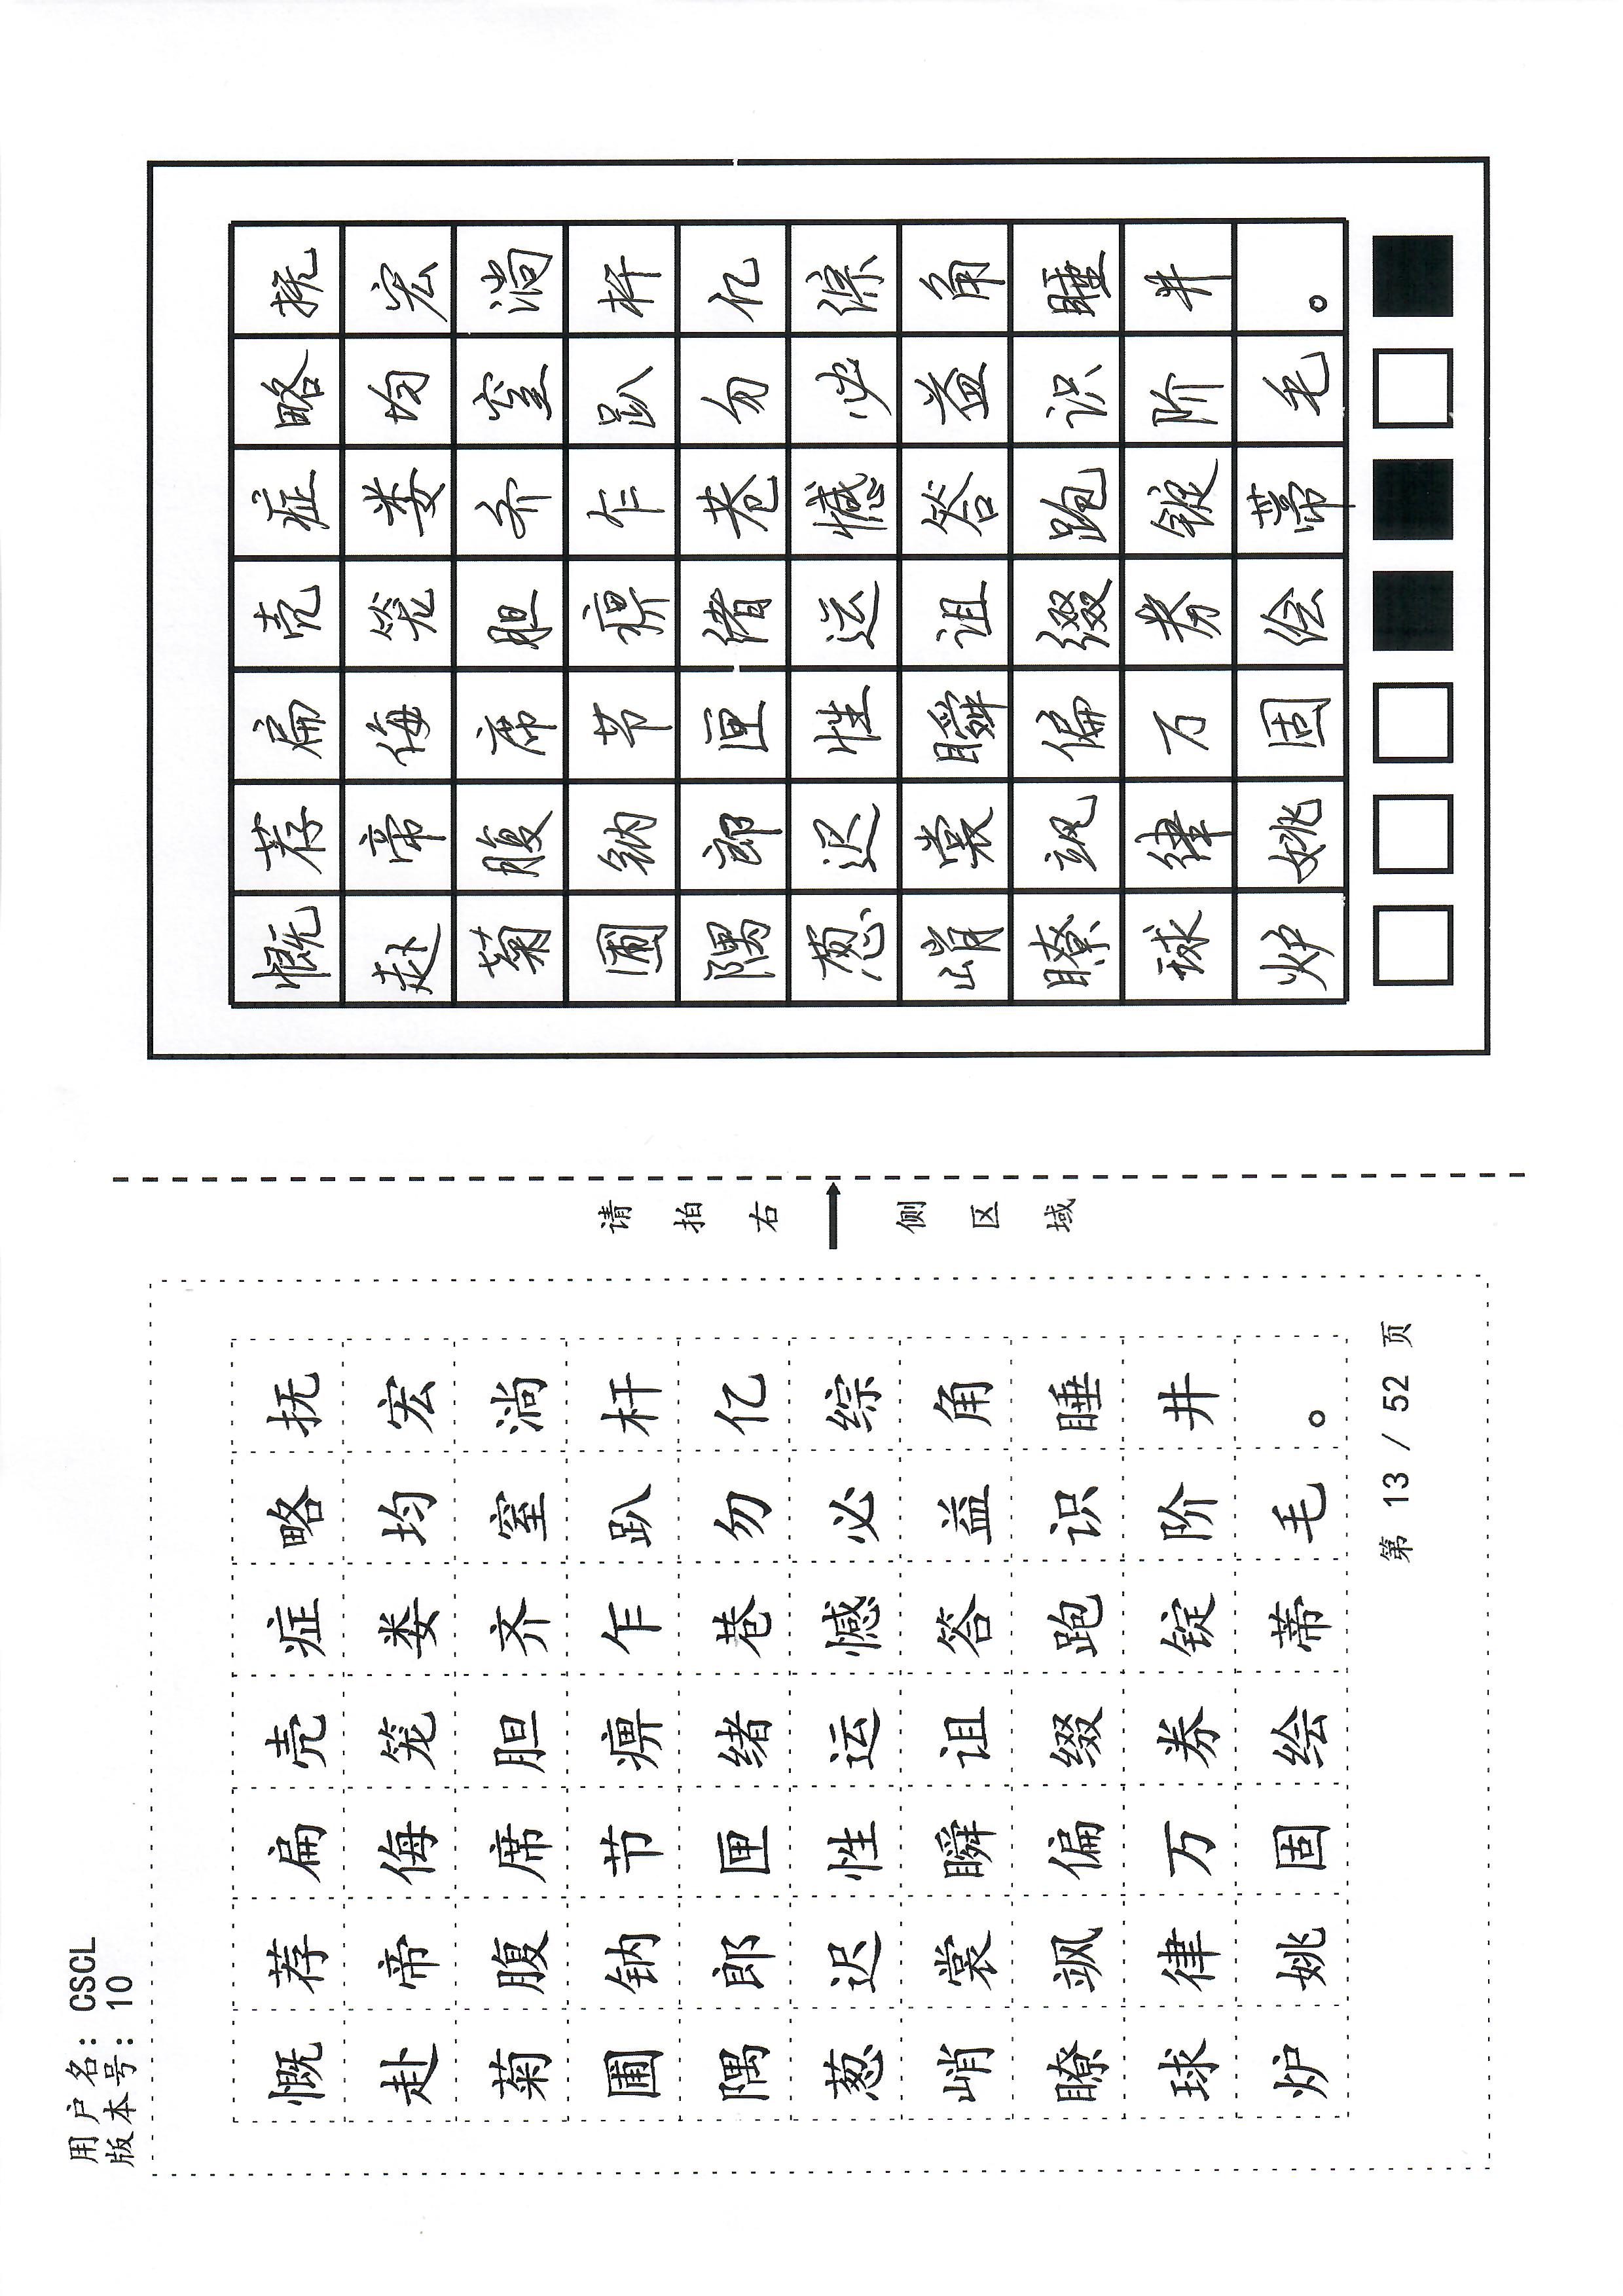 用户名：CSCL
版本号：10
慨荐扁壳症略抚
赴帝侮笼娄均宏
菊腹席胆齐窒淌
圃钠节痹乍趴杆
隅郎匣绪巷勿亿
葱迟性运憾必综
峭裳瞬诅答益角
瞭飒偏缀跑识睡
球律万券锭阶井
炉姚固绘蒂毛。
第 13 / 52 页
请拍右侧区域
慨荐扁壳症略抚
赴帝侮笼娄均宏
菊腹席胆齐窒淌
圃钠节痹乍趴杆
隅郎匣绪巷勿亿
葱迟性运憾必综
峭裳瞬诅答益角
瞭飒偏缀跑识睡
球律万券锭阶井
炉姚固绘蒂毛。